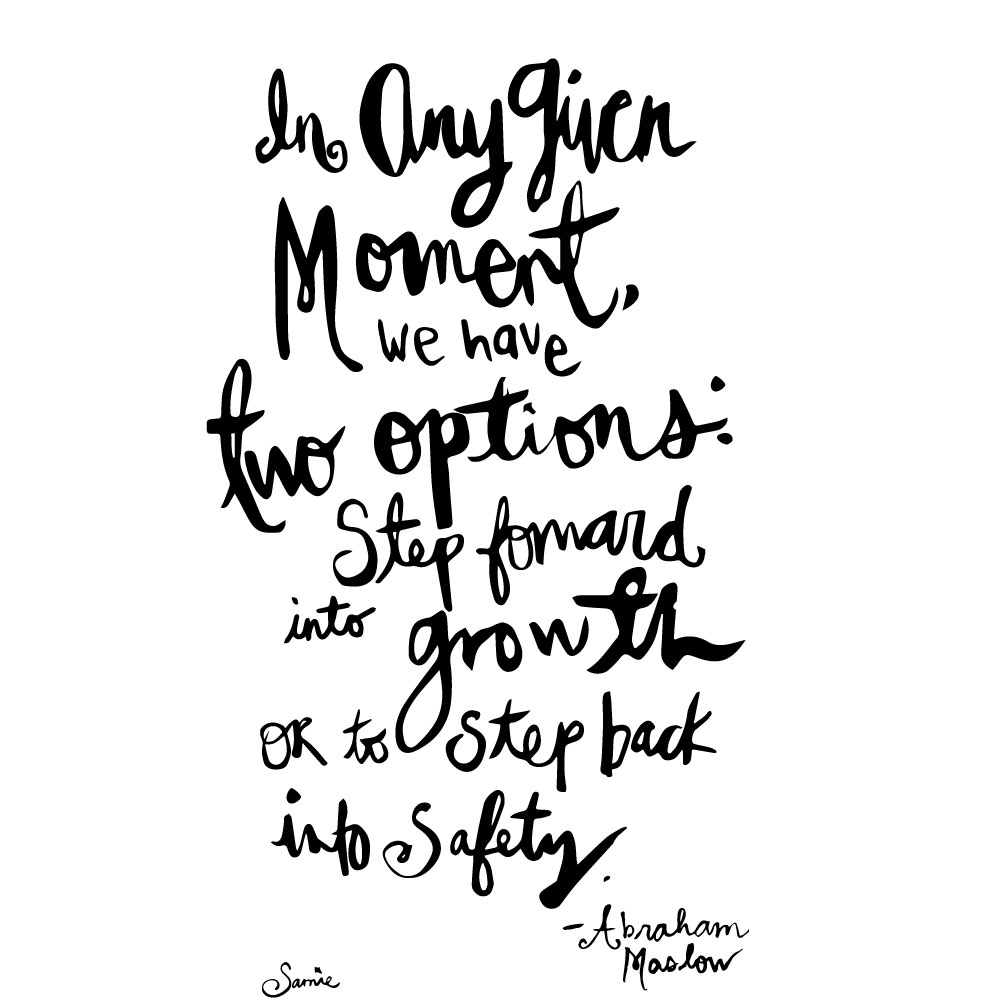 In Any given
Moment,
we have
two options:
Step forward
into growth
or to step back
into safety.
-Abraham
Maslow
Samie